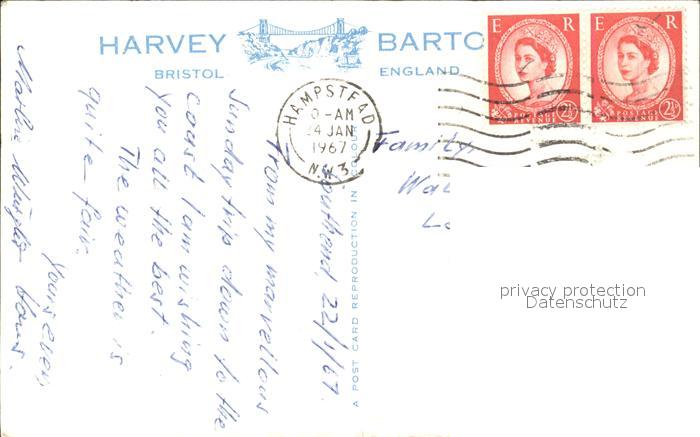 HARVEY BARTO
BRISTOL ENGLAND
E R E R
POSTAGE REVENUE 2½ POSTAGE REVENUE 2½
HAMPSTEAD
0-AM
24 JAN
1967
N.W.3
A POST CARD REPRODUCTION IN COLOUR
Southend, 22/1/67.
From my marvellous
Sunday trip down to the
coast I am wishing
you all the best.
The weather is
quite fair.
Yours ever,
Family
Wa
L
privacy protection
Datenschutz